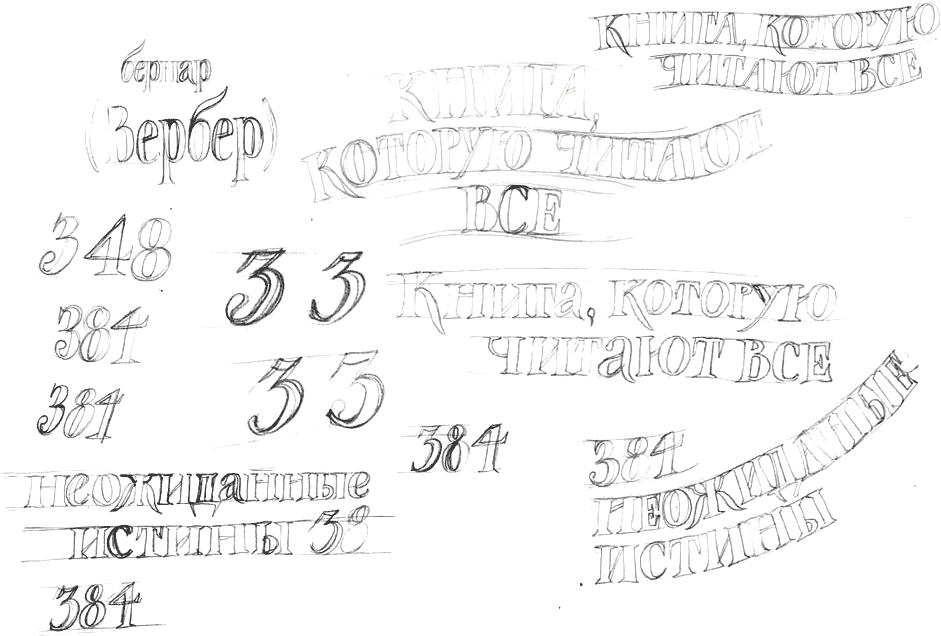 Книга, которую
читают все
бернар
(Вербер)
Книга,
которую читают
все
348
3 3
Книга, которую
читают все
384
3 3
384
384
384
неожиданные
истины
неожиданные
истины 38
384